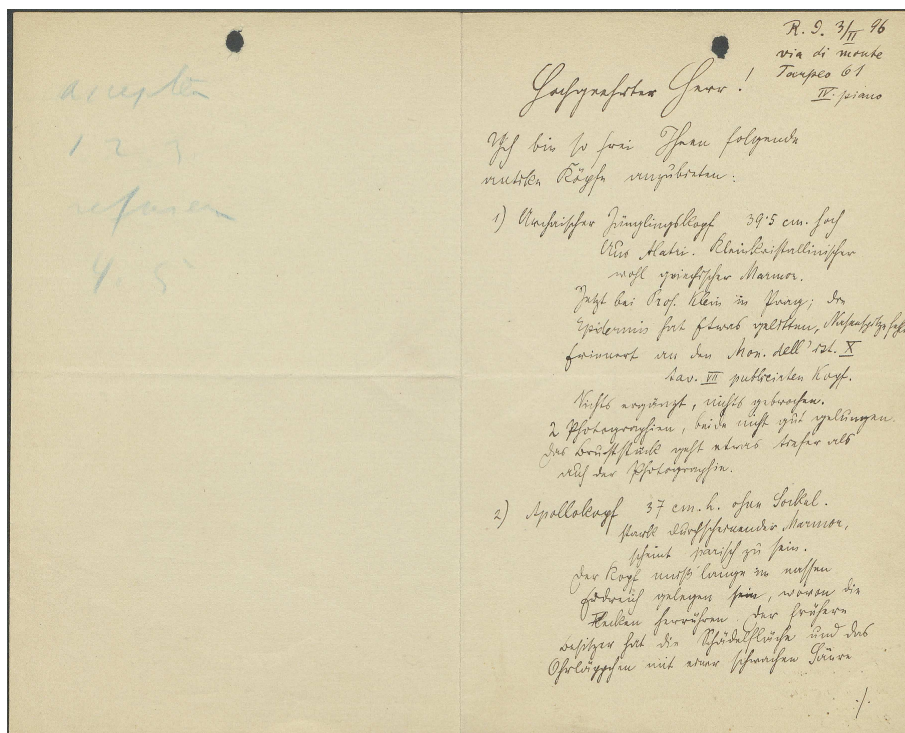 accepter
1 2 3
refuser
4. 5
R. D. 3/II 96
via di monte
Tarpeo 61
IV. piano
Hochgeehrter Herr!
Ich bin so frei Ihnen folgende
antike Köpfe anzubieten:
1) Archaischer Jünglingskopf 39·5 cm. hoch
Aus Alatri. Kleinkristallinischer
wohl griechischer Marmor.
Jetzt bei Prof. Klein in Prag; die
Epidermis hat Etwas gelitten, Nasenspitze fehlt
Erinnert an den Mon. dell' ist. X
tav. VII publicirten Kopf.
Nichts ergänzt, nichts gebrochen.
2 Photographien, beide nicht gut gelungen.
Das Bruststück geht etwas tiefer als
auf der Photographie.
2) Apollokopf 37 cm. h. ohne Sockel.
Stark durchscheinender Marmor,
scheint parisch zu sein.
Der Kopf muß lange im nassen
Erdreich gelegen sein, wovon die
Flecken herrühren. Der frühere
Besitzer hat die Schädelfläche und das
Ohrläppchen mit einer schwachen Säure
./.